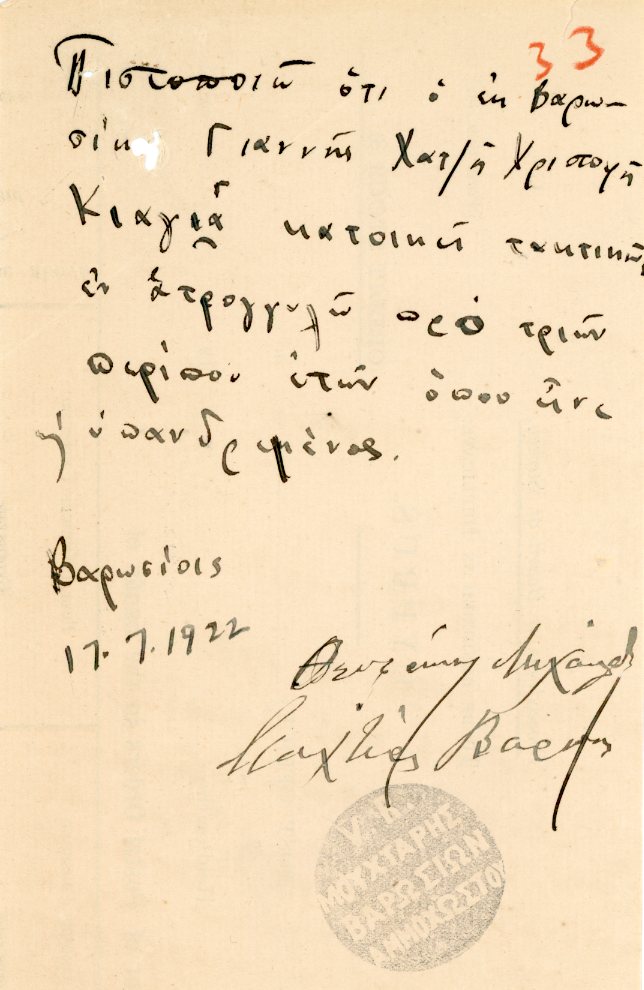 33
Πιστοποιῶ ὅτι ὁ ἐκ Βαρω-
σίων Γιαννῆς Χατζῆ Χριστοφῆ
Κιαγιᾶ κατοικεῖ τακτικῶς
ἐν Στρογγυλῷ πρὸ τριῶν
περίπου ἐτῶν ὅπου εἶνε
ὑπανδρεμένος.
Βαρωσίοις
17.7.1922
Μουχτάρης Βαρωσίων
V. H.
ΜΟΥΧΤΑΡΗΣ
ΒΑΡΩΣΙΩΝ
ΑΜΜΟΧΩΣΤΟΥ